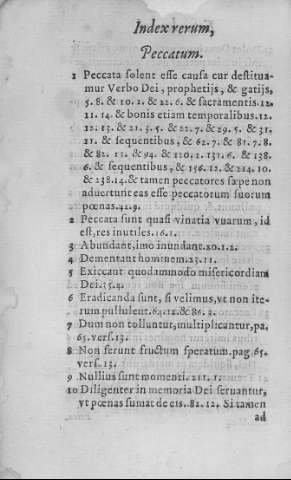 Index rerum,
Peccatum.
1 Peccata solent esse causa cur destitua-
mur Verbo Dei, prophetijs, & gatijs,
5. 8. & 10. 2. & 22. 6. & sacramentis. 12.
11. 14. & bonis etiam temporalibus. 12.
12. 13. & 21. 3. 5. & 22. 7. & 29. 5. & 31.
21. & sequentibus, & 62. 7. & 81. 7. 8.
& 82. 11. & 94. & 120. 2. 131. 6. & 138.
6. & sequentibus, & 156. 12. & 214. 10.
& 238. 14. & tamen peccatores sæpe non
aduertunt eas esse peccatorum suorum
pœnas. 42. 9.
2 Peccata sunt quasi vinatia vuarum, id
est, res inutiles. 16. 1.
3 Abundant, imo inundant. 20. 1. 2.
4 Dementant hominem. 23. 11.
5 Exiccant quodammodo misericordiam
Dei. 35. 4.
6 Eradicanda sunt, si velimus, vt non ite-
rum pullulent. 64. 12. & 86. 2.
7 Dum non tolluntur, multiplicantur, pa,
65. vers. 13.
8 Non ferunt fructum speratum. pag 65.
vers. 13.
9 Nullius sunt momenti. 211. 1.
10 Diligenter in memoria Dei seruantur,
vt pœnas sumat de eis. 82. 12. Si tamen
ad